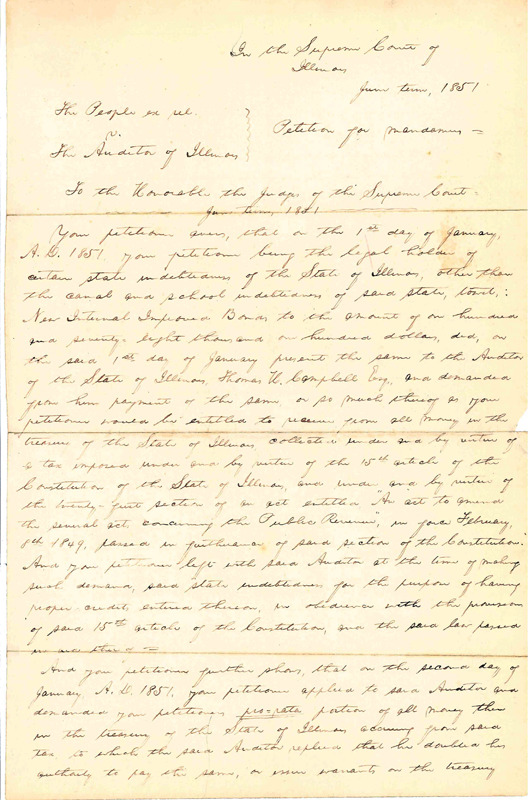 In the Supreme Court of
Illinois
June term, 1851
The People ex rel.
v.
The Auditor of Illinois
Petition for mandamus =
To the Honorable the Judges of the Supreme Court =
June term, 1851
Your petitioner avers, that on the 1st day of January,
A.D. 1851, your petitioner being the legal holder of
certain state indebtedness of the State of Illinois, other than
the canal and school indebtedness of said state, towit,:
New Internal Improved Bonds to the amount of one hundred
and seventy-eight thousand one hundred dollars, did, on
the said 1st day of January present the same to the Auditor
of the State of Illinois, Thomas H. Campbell Esq, and demanded
from him payment of the same, or so much thereof as your
petitioner would be entitled to receive from all money in the
treasury of the State of Illinois collected under and by virtue of
a tax imposed under and by virtue of the 15th article of the
Constitution of the State of Illinois, and under and by virtue of
the twenty-first section of an act entitled "An act to amend
the several acts concerning the Public Revenue", in force February,
8th 1849, passed in furtherance of said section of the Constitution:
And your petitioner left with said Auditor at the time of making
such demand, said state indebtedness for the purpose of having
proper credits entered thereon, in obedience with the provisions
of said 15th article of the Constitution, and the said law passed
in =
And your petitioner further shows, that on the second day of
January A.D. 1851, your petitioner applied to said Auditor and
demanded your petitioners pro-rata portion of all money then
in the treasury of the State of Illinois accruing from said
tax to which the said Auditor replied that he doubted his
authority to pay the same, or issue warrants on the treasury